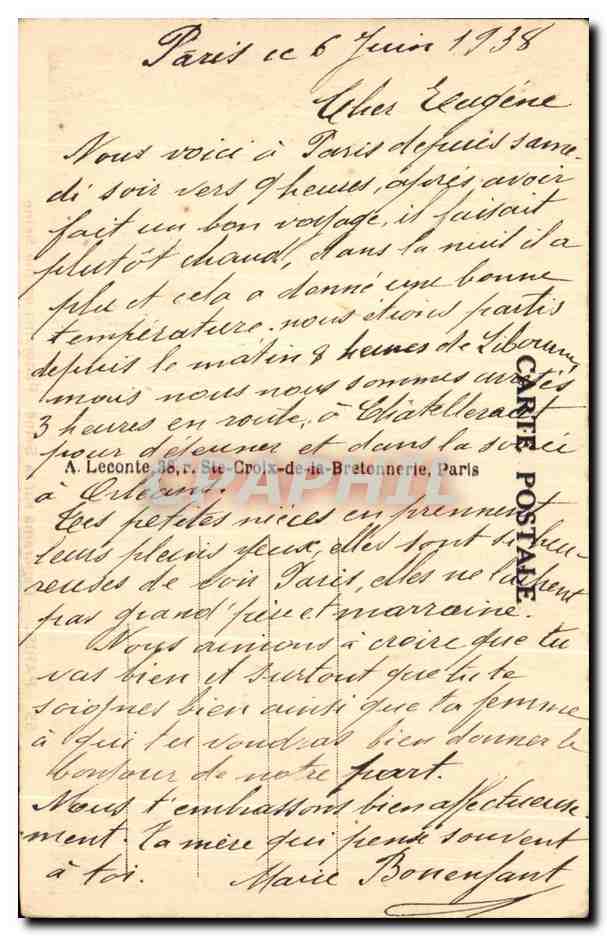 Paris le 6 Juin 1938
Cher Eugéne
Nous voici à Paris depuis same-
di soir vers 9 heures, aprés avoir
fait un bon voyage, il faisait
plutôt chaud, dans la nuit il a
plu et cela a donné une bonne
température. nous étions partis
depuis le matin 8 heures de Libourne
mais nous nous sommes arrêtés
3 heures en route, à Châtellerault
pour déjeuner et dans la soirée
A. Leconte, 38, r. Ste-Croix-de-la-Bretonnerie, Paris
CARTE POSTALE
CPAPHIL
à Orléans.
Tes petites nièces en prennent
leurs pleins yeux, elles sont si heu-
reuses de voir Paris, elles ne lâchent
pas grand'père et marraine.
Nous aimons à croire que tu
vas bien et surtout que tu te
soignes bien ainsi que ta femme
à qui tu voudras bien donner le
bonjour de notre part.
Nous t'embrassons bien affectueuse-
ment. ta mère qui pense souvent
à toi. Marie Bonenfant